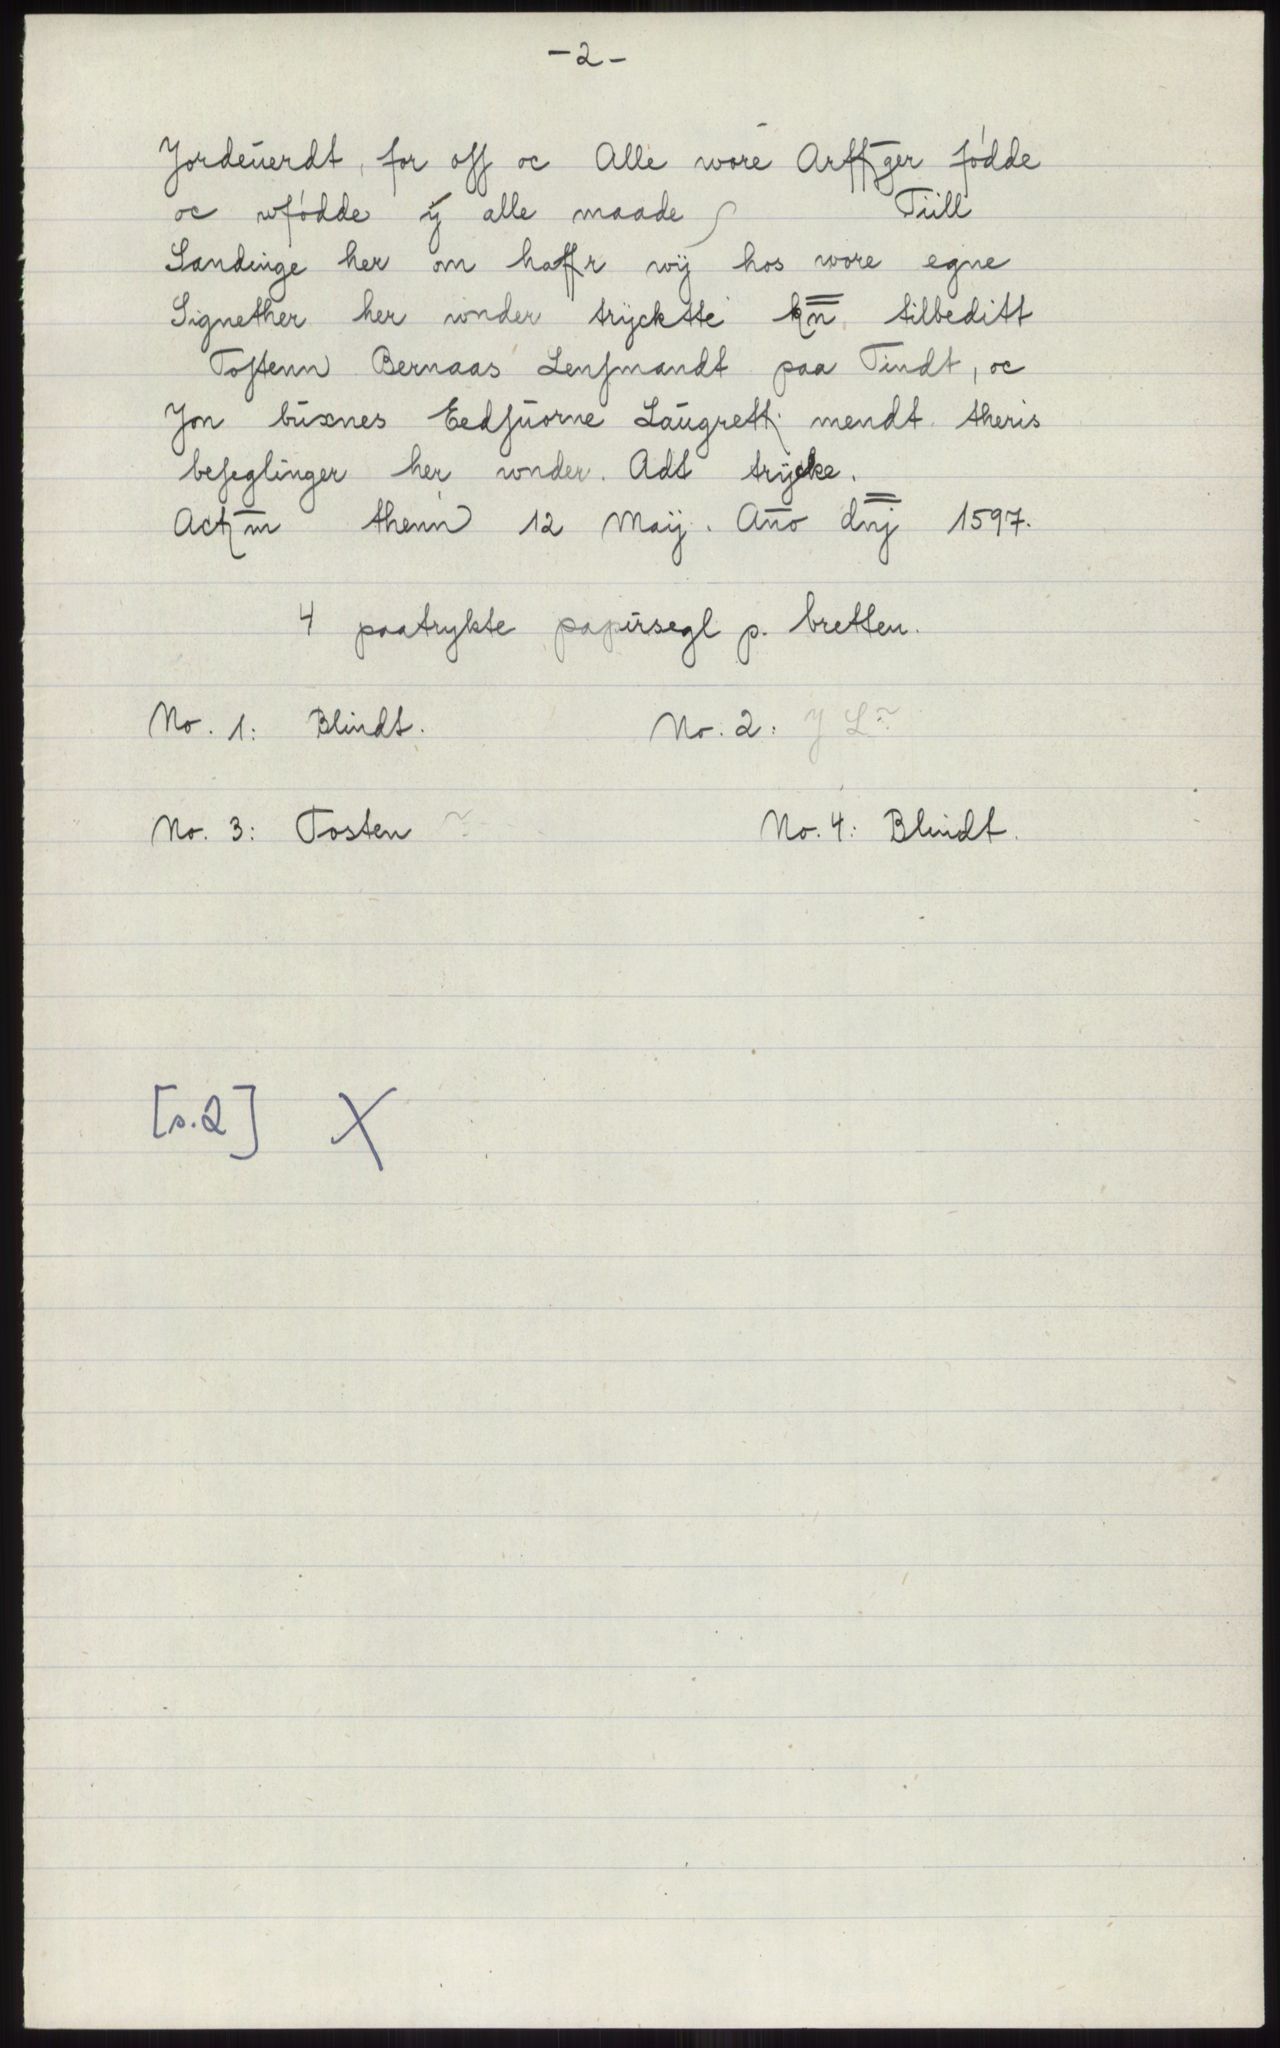 -2-
Jordeuerdt, for oss oc Alle wore Arffger fødde
oc wfødde ÿ alle maade Tiill
Sandinge her om haffr wÿ hos wore egne
Signether her wnder trÿckte tilbeditt
Tostenn Bernaas Lensmandt paa Tindt, oc
Jon buxnes Eedsuorne Laugrett mendt theris
beseglinger her wnder. Adt trÿcke.
Actm thenn 12 Maÿ. Año dnj 1597.
4 paatrykte papirsegl p. bretten.
No. 1: Blindt. No. 2: J L
No. 3: Tosten No. 4: Blindt.
[s.2] X